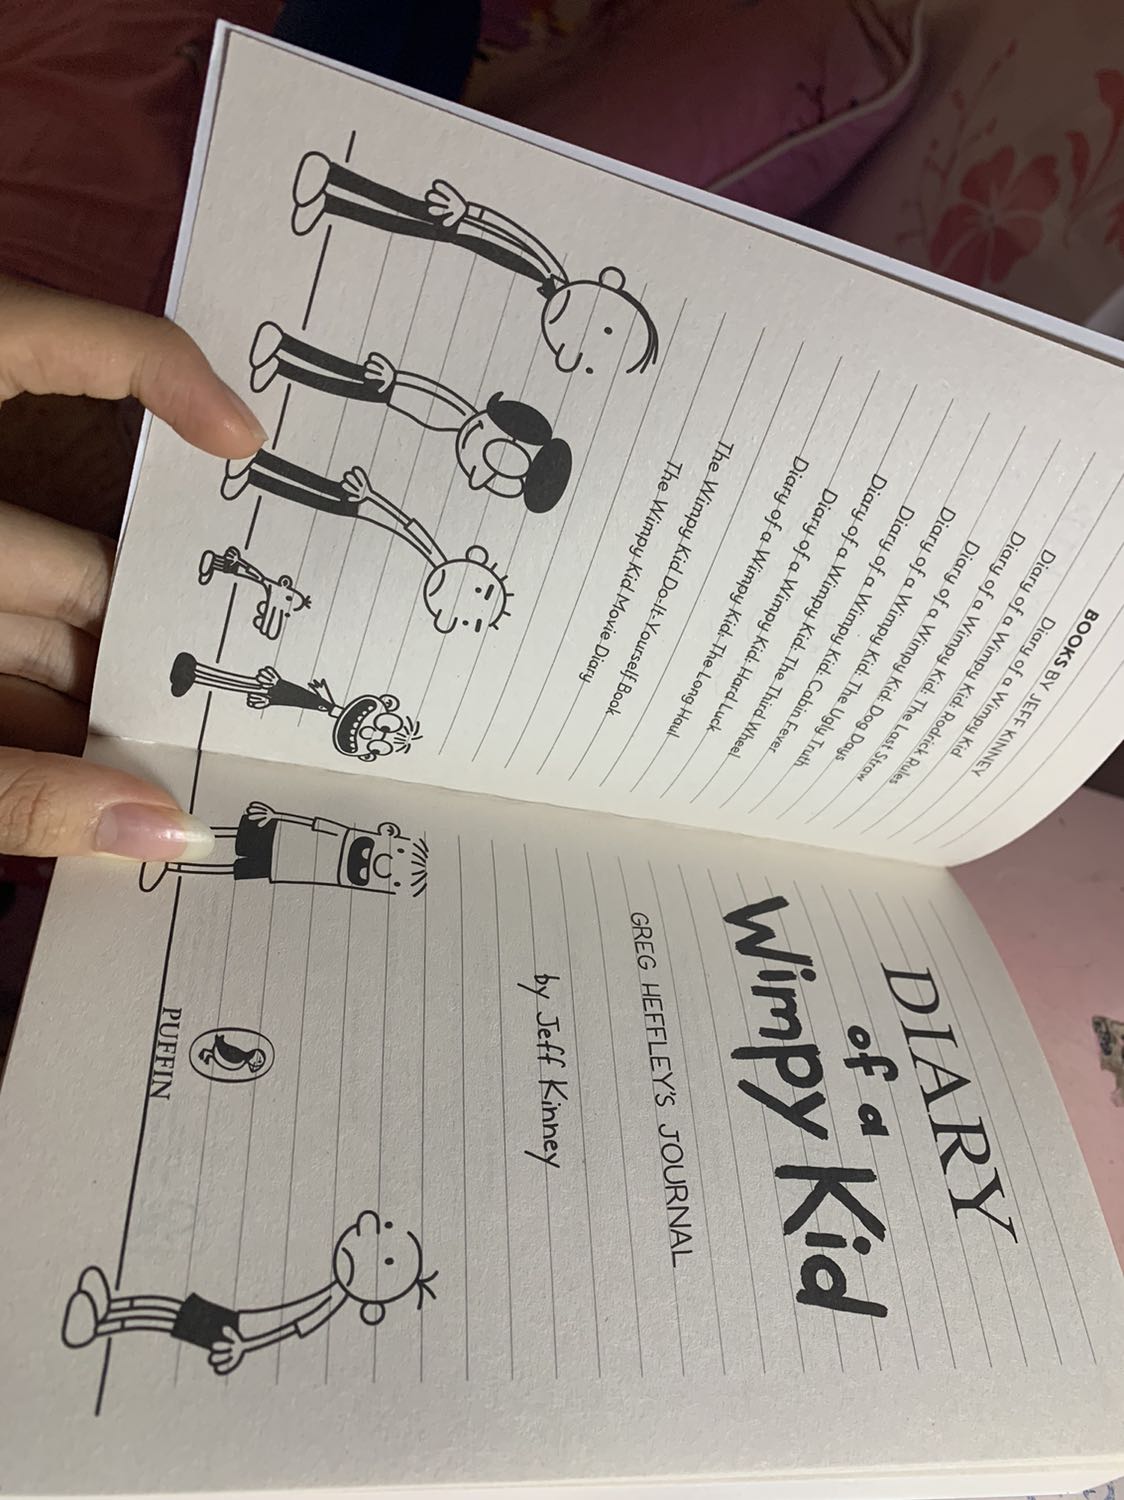 BOOKS BY JEFF KINNEY
Diary of a Wimpy Kid
Diary of a Wimpy Kid: Rodrick Rules
Diary of a Wimpy Kid: The Last Straw
Diary of a Wimpy Kid: Dog Days
Diary of a Wimpy Kid: The Ugly Truth
Diary of a Wimpy Kid: Cabin Fever
Diary of a Wimpy Kid: The Third Wheel
Diary of a Wimpy Kid: Hard Luck
Diary of a Wimpy Kid: The Long Haul
The Wimpy Kid Do-It-Yourself Book
The Wimpy Kid Movie Diary
DIARY
of a
Wimpy Kid
GREG HEFFLEY'S JOURNAL
by Jeff Kinney
PUFFIN